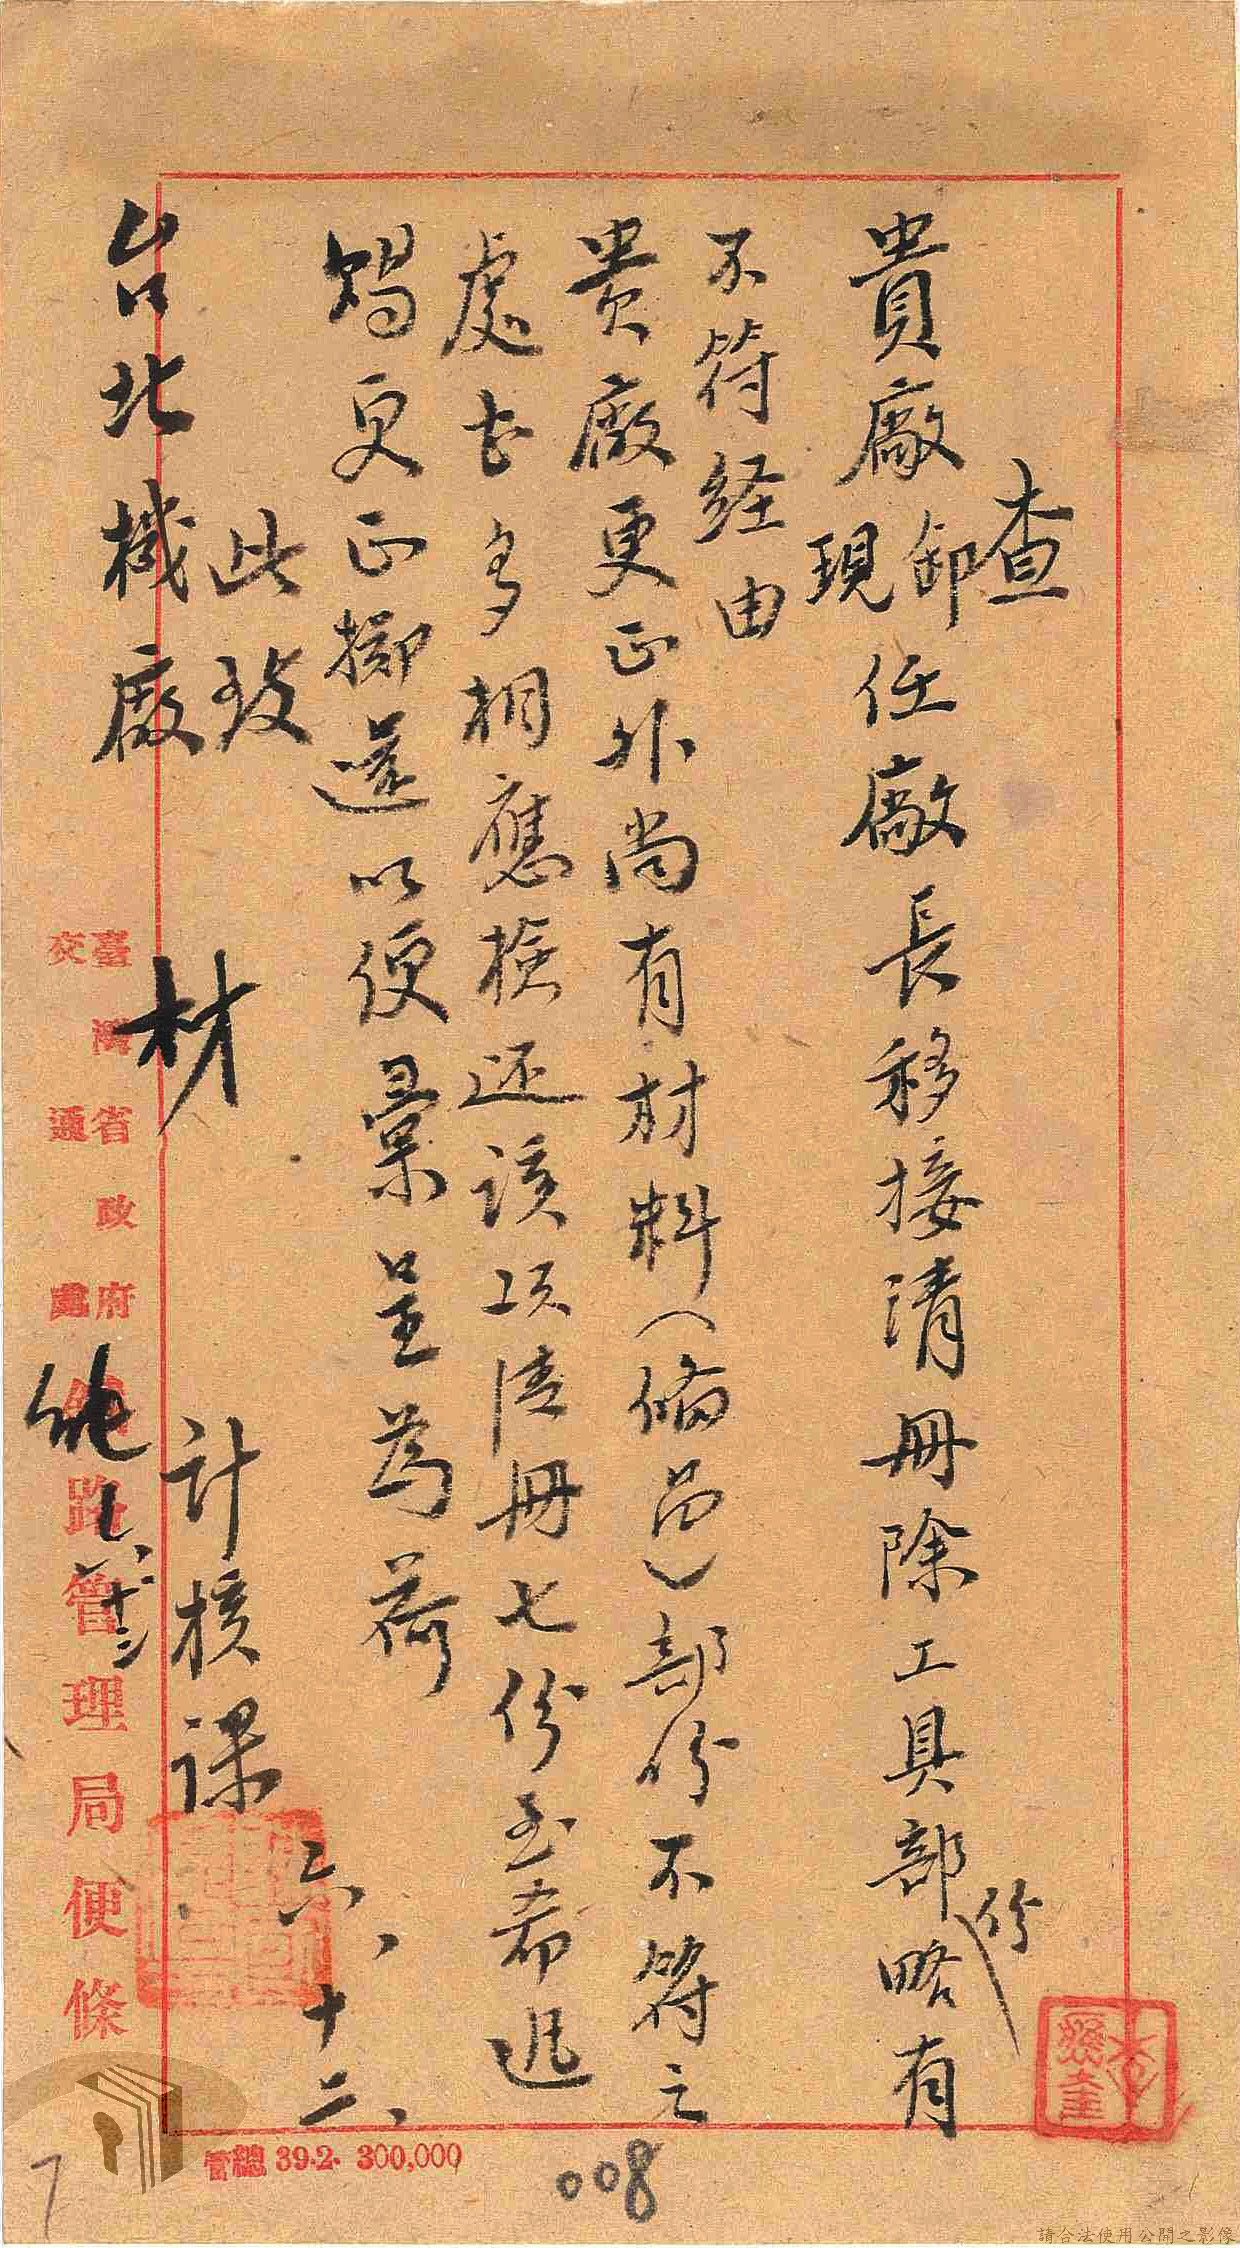 查
貴廠卸現任廠長移接清冊除工具部份略有
不符経由
貴廠更正外尚有材料(備品)部份不符之
處甚多相應檢还該項清冊七份至希迅
賜更正擲還以便彙呈為荷
此致
台北機廠
材
計核課
六、十二、
臺灣省政府
交通處
鐵路管理局便條
六、十二
管總 39.2. 300,000
008
7
請合法使用公開之影像